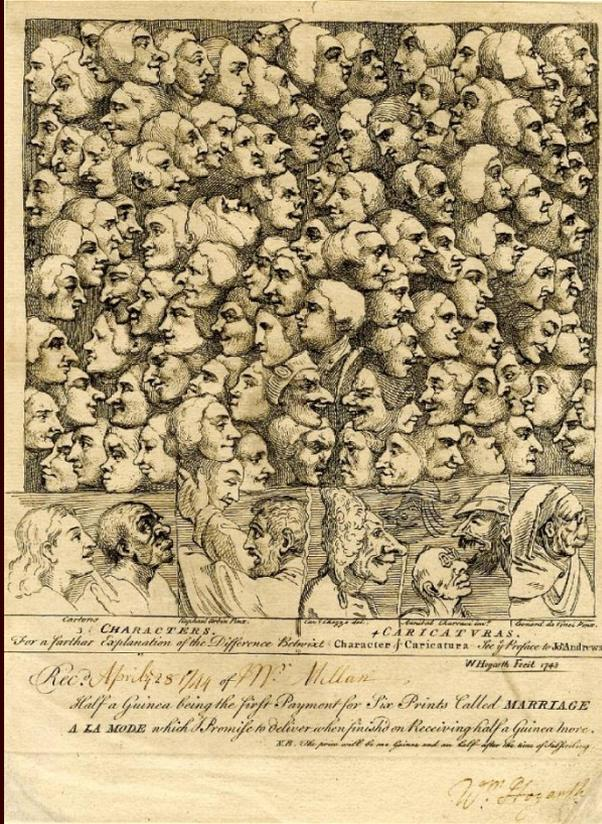 Cartons Raphael Urbin Pinx. Cavr. Chezze del. Annibal Charraci inv.t Leonard da Vinci Pinx.
3 CHARACTERS. 4 CARICATURAS.
For a farthar Explanation of the Difference Betwixt Character & Caricatura See ye Preface to Jos. Andrews
W. Hogarth Fecit 1743
Recd. April 28 1744 of Mr. Millan
Half a Guinea being the first Payment for Six Prints Called MARRIAGE
A LA MODE which I Promise to deliver when finish'd on Receiving half a Guinea more.
N.B. The price will be one Guinea and an half after the time of Subscribing
Wm. Hogarth